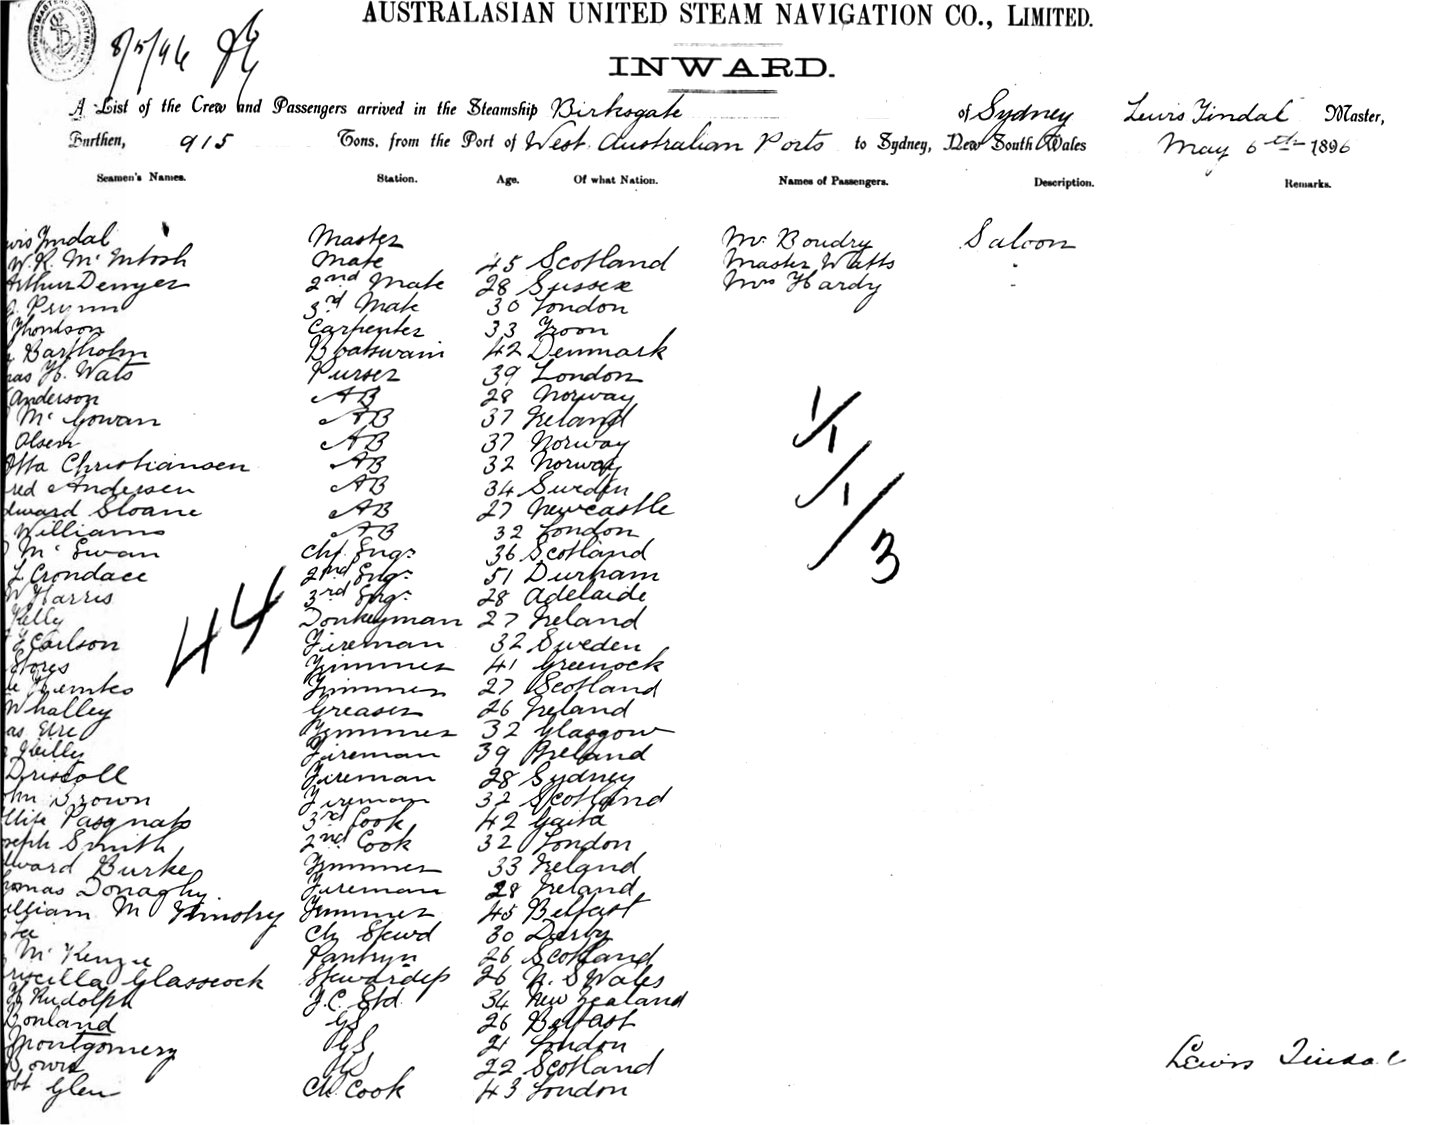 8/5/96
AUSTRALASIAN UNITED STEAM NAVIGATION CO., LIMITED.
INWARD.
A List of the Crew and Passengers arrived in the Steamship Birksgate of Sydney Lewis Tindal Master,
Burthen, 915 Tons, from the Port of West Australian Ports to Sydney, New South Wales May 6th 1896
Seamen's Names. Station. Age. Of what Nation. Names of Passengers. Description. Remarks.
wis Tindal Master Mr Boudry Saloon
W. R. McIntosh Mate 45 Scotland Master Watts "
Arthur Denyer 2nd Mate 28 Sussex Mrs Hardy "
Prynn 3rd Mate 30 London
Thomson Carpenter 33 Troon
Bartholm Boatswain 42 Denmark
as H. Wats Purser 39 London
Anderson AB 28 Norway
McGowan AB 37 Ireland
Olsen AB 37 Norway
Otto Christiansen AB 32 Norway
red Andersen AB 34 Sweden
dward Sloane AB 27 Newcastle
Williams AB 32 London
McEwan Chf. Engr 36 Scotland
L Crondace 2nd Engr 51 Durham
W Harris 3rd Engr 28 Adelaide
Kelly Donkeyman 27 Ireland
Carlson Fireman 32 Sweden
Stores Trimmer 41 Greenock
Trimmer 27 Scotland
Whalley Greaser 26 Ireland
as Ure Trimmer 32 Glasgow
Reilly Fireman 39 Ireland
Driscoll Fireman 28 Sydney
ohn Brown Fireman 32 Scotland
Pasqnato 3rd Cook 42 Gaita
oseph Smith 2nd Cook 32 London
dward Burke Trimmer 33 Ireland
homas Donaghy Fireman 28 Ireland
illiam M Trimmer 45 Belfast
Lee Ch Stewd 30 Derby
McKenzie Pantryn 26 Scotland
riscilla Glasscock Stewardess 26 N. S Wales
H Rudolph F.C. Std 34 New Zealand
Bonland GS 26 Belfast
Montgomery GS 21 London
Bowie GS 22 Scotland
obt Glen Ch. Cook 43 London
44
1/1/1/3
Lewis Tindal